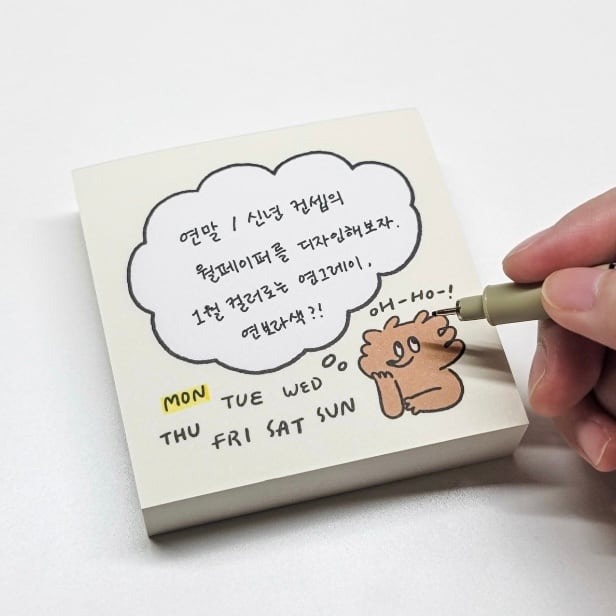 연말 / 신년 컨셉의
월페이퍼를 디자인해보자.
1월 컬러로는 연그레이,
연보라색?!
OH-HO-!
MON TUE WED
THU FRI SAT SUN